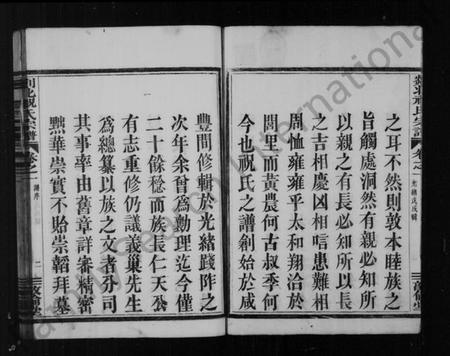 之耳不然則敦本睦族之
旨觸處洞然有親必知所
以親之有長必知所以長
之吉相慶凶相唁患難相
周恤雍雍乎太和翔洽於
閭里而黃農何古叔季何
今也祝氏之譜創始於咸
剡北祝氏宗譜
卷之一
譜序
豐間修輯於光緒踐阼之
次年余曾為勷理迄今僅
二十餘稔而族長仁天公
有志重修仍議義巢先生
為總纂以族之文者分司
其事率由舊章詳審精密
黜華崇實不貽崇韜拜墓